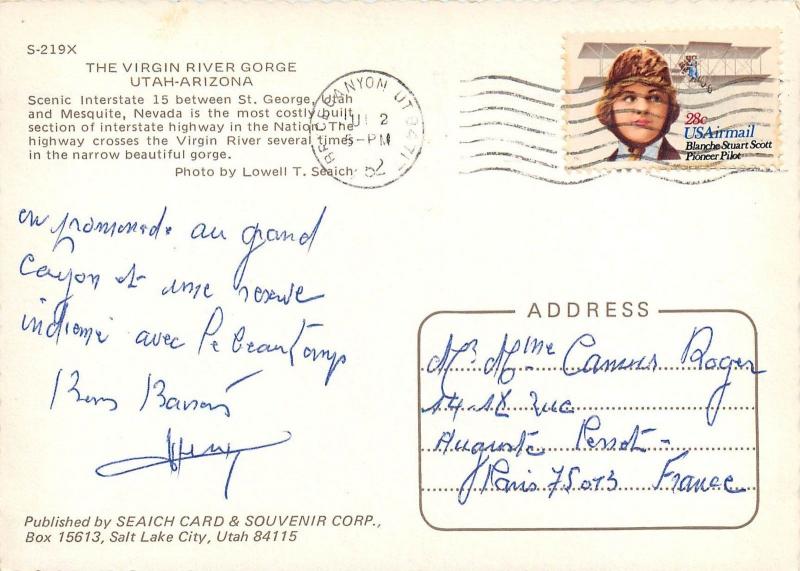 S-219X
THE VIRGIN RIVER GORGE
UTAH-ARIZONA
Scenic Interstate 15 between St. George, Utah
and Mesquite, Nevada is the most costly built
section of interstate highway in the Nation. The
highway crosses the Virgin River several times
in the narrow beautiful gorge.
Photo by Lowell T. Seaich
BRYCE CANYON UT 8471
2
5-PM
28c
USAirmail
Blanche Stuart Scott
Pioneer Pilot
en promenade au grand
cayon et une reserve
indienne avec le beau temps
Bons Baisers
ADDRESS
Mr Mme Camus Roger
14-18 Rue
Auguste Perret -
Paris 75013 France
Published by SEAICH CARD & SOUVENIR CORP.,
Box 15613, Salt Lake City, Utah 84115